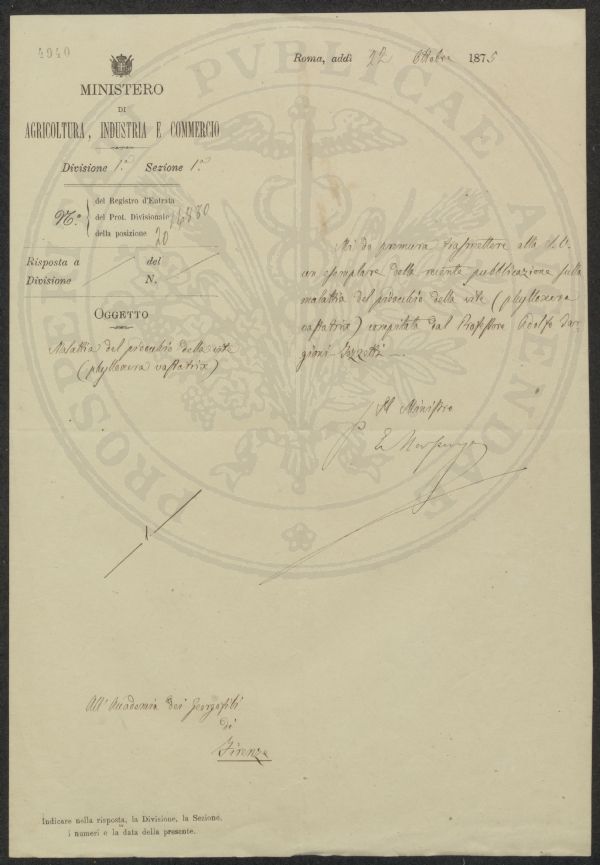 4940
Roma, addì 22 Ottobre 1875
MINISTERO
DI
AGRICOLTURA, INDUSTRIA E COMMERCIO
Divisione 1ª Sezione 1ª
N.º
del Registro d'Entrata
del Prot. Divisionale 16880
della posizione 20
Risposta a del
Divisione N.
OGGETTO
Malattia del pidocchio della vite
(phylloxera vastatrix)
Mi do premura trasmettere alla S. V.
un esemplare della recente pubblicazione sulla
malattia del pidocchio della vite (phylloxera
vastatrix) compilata dal Professore Adolfo Tar-
gioni-Tozzetti.
Il Ministro
All'Accademia dei Georgofili
di
Firenze
Indicare nella risposta, la Divisione, la Sezione,
i numeri e la data della presente.
PUBLICAE